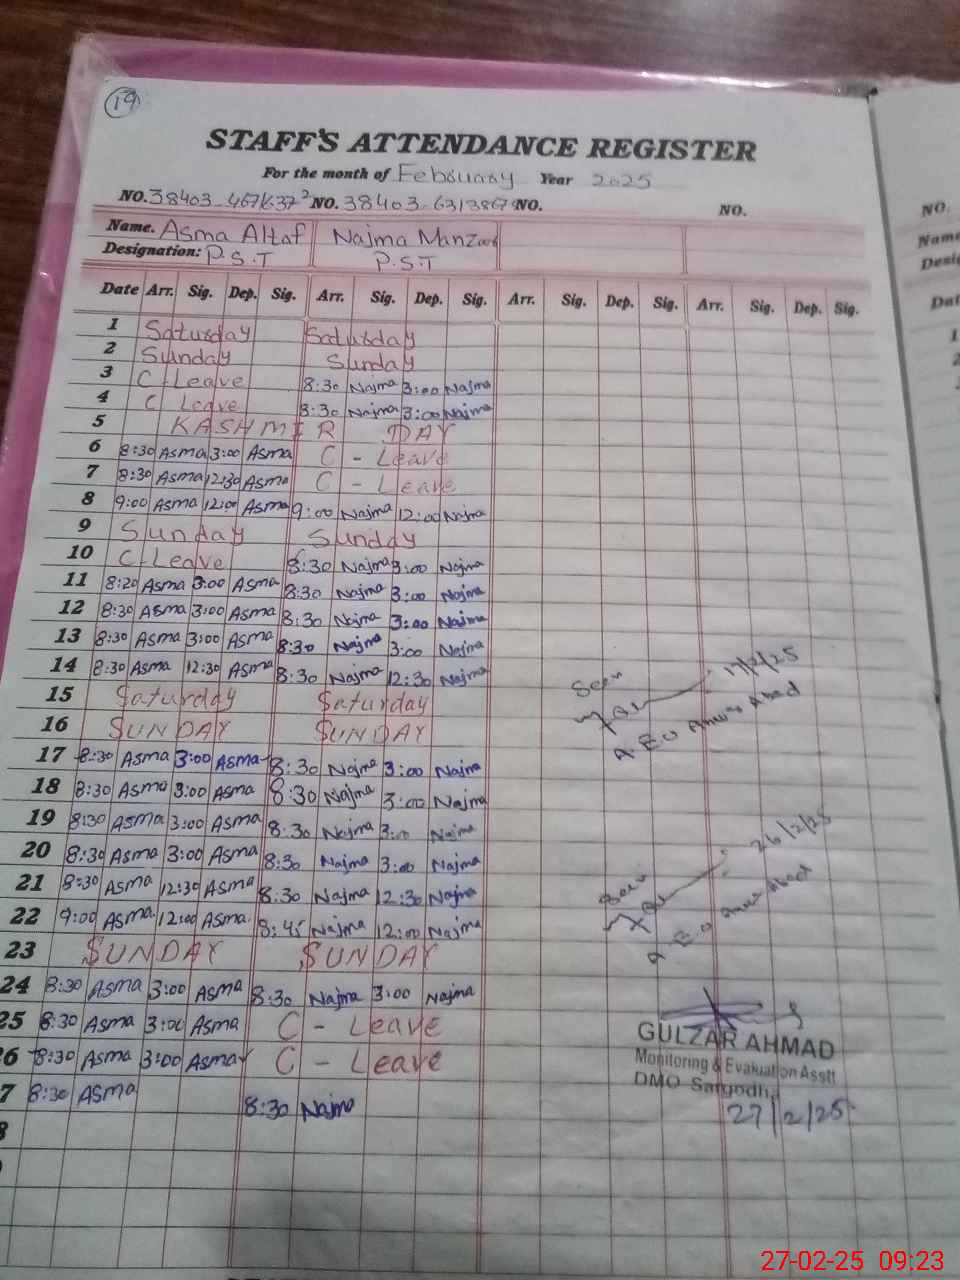 19
STAFF'S ATTENDANCE REGISTER
For the month of February Year 2025
NO. 38403 NO. 38403 NO. NO.
Name. Asma Altaf Najma Manzoor
Designation: P.S.T P.S.T
Date Arr. Sig. Dep. Sig. Arr. Sig. Dep. Sig. Arr. Sig. Dep. Sig. Arr. Sig. Dep. Sig.
1 Saturday Saturday
2 Sunday Sunday
3 C Leave 8:30 Najma 3:00 Najma
4 C Leave 8:30 Najma 3:00 Najma
5 KASHMIR DAY
6 8:30 Asma 3:00 Asma C - Leave
7 8:30 Asma 12:30 Asma C - Leave
8 9:00 Asma 12:00 Asma 9:00 Najma 12:00 Najma
9 Sunday Sunday
10 C Leave 8:30 Najma 3:00 Najma
11 8:20 Asma 3:00 Asma 8:30 Najma 3:00 Najma
12 8:30 Asma 3:00 Asma 8:30 Najma 3:00 Najma
13 8:30 Asma 3:00 Asma 8:30 Najma 3:00 Najma
14 8:30 Asma 12:30 Asma 8:30 Najma 12:30 Najma
Seen 17/2/25
A.E.O Abad
15 Saturday Saturday
16 SUNDAY SUNDAY
17 8:30 Asma 3:00 Asma 8:30 Najma 3:00 Najma
18 8:30 Asma 3:00 Asma 8:30 Najma 3:00 Najma
19 8:30 Asma 3:00 Asma 8:30 Najma 3:00 Najma
20 8:30 Asma 3:00 Asma 8:30 Najma 3:00 Najma
21 8:30 Asma 12:30 Asma 8:30 Najma 12:30 Najma
22 9:00 Asma 12:00 Asma 8:45 Najma 12:00 Najma
Seen 26/2/25
A.E.O Abad
23 SUNDAY SUNDAY
24 8:30 Asma 3:00 Asma 8:30 Najma 3:00 Najma
25 8:30 Asma 3:00 Asma C - Leave
6 8:30 Asma 3:00 Asma C - Leave
7 8:30 Asma 8:30 Najma
8
GULZAR AHMAD
Monitoring & Evaluation Asstt
DMO Sargodha
27/2/25
NO.
Name
27-02-25 09:23